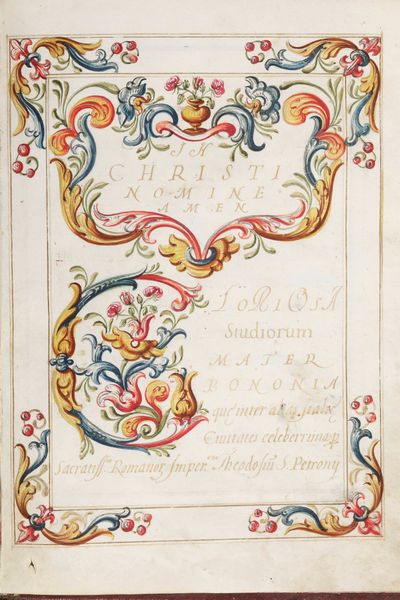 IN
CHRISTI
NOMINE
AMEN
GLORIOSA
Studiorum
MATER
BONONIA
quæ inter
Civitates celeberrima
Sacratiss. Romanor. Imper. Theodosiu S. Petronij